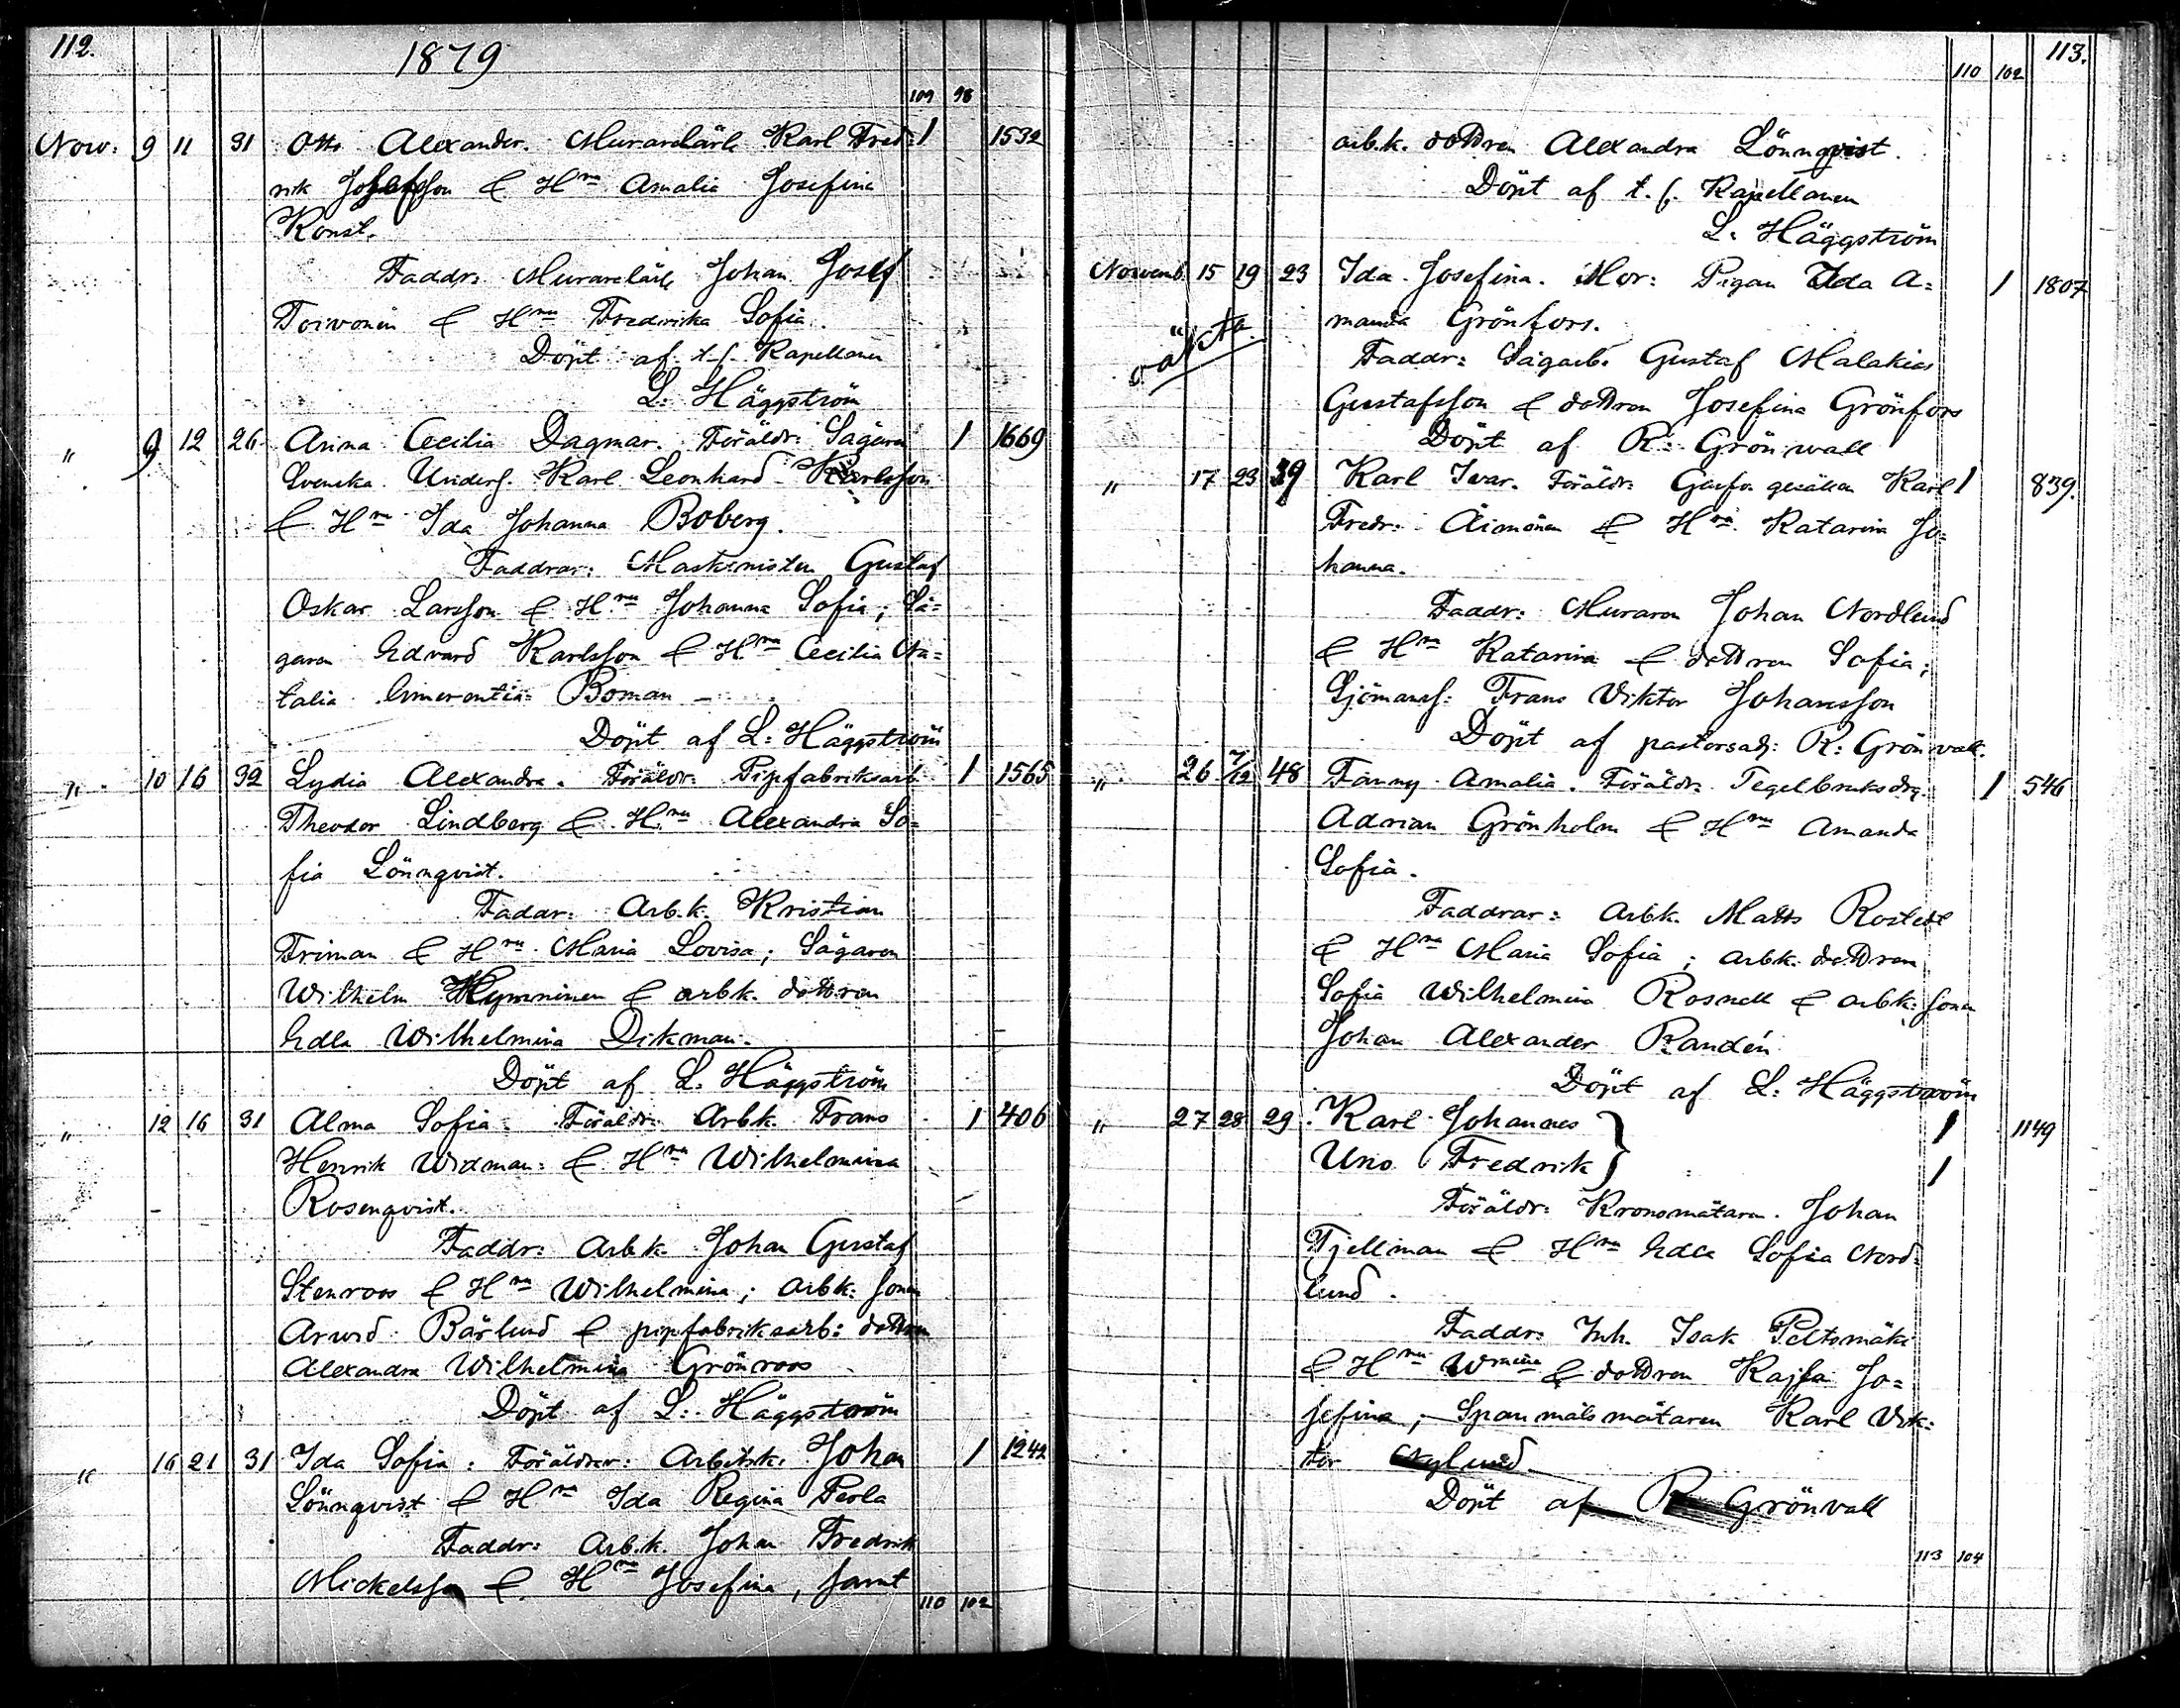 112.
1879
109 98
Nov. 9 11 31 Otto Alexander. Murarelärl. Karl Fred- 1 1532
rik Josefsson & Hru Amalia Josefina
Konst.
Faddr: Murarelärl. Johan Josef
Toivonen & Hru Fredrika Sofia.
Döpt af t.f. Kapellanen
L: Häggström
" 9 12 26 Anna Cecilia Dagmar. Föräldr: Sågaren 1 1669
Svenska Unders. Karl Leonhard Karlsson
& Hru Ida Johanna Boberg.
Faddrar: Maskinisten Gustaf
Oskar Larsson & Hru Johanna Sofia; Så=
garen Edvard Karlsson & Hru Cecilia Na=
talia Emerentia Boman –
Döpt af L: Häggström
" 10 16 32 Lydia Alexandra. Föräldr: Pipfabriksarb. 1 1565
Theodor Lindberg & Hru Alexandra So=
fia Lönnqvist.
Faddr: Arb.k. Kristian
Friman & Hru Maria Lovisa; Sågaren
Wilhelm Hymninen & arb.k. dottren
Edla Wilhelmina Dikman.
Döpt af L: Häggström
" 12 16 31 Alma Sofia. Föräldr: Arbk. Frans 1 406
Henrik Widman & Hru Wilhelmina
Rosenqvist.
Faddr: Arb.k. Johan Gustaf
Stenroos & Hru Wilhelmina; arbk: sonen
Arvid Bärlund & pipfabriksarb: dottren
Alexandra Wilhelmina Grönroos
Döpt af L: Häggström
" 16 21 31 Ida Sofia: Föräldrar: Arbetsk. Johan 1 1242
Lönnqvist & Hru Ida Regina Perla
Faddr: Arb.k. Johan Fredrik
Mickelsson & Hru Josefina, samt
110 102
113.
110 102
arb.k. dottren Alexandra Lönnqvist.
Döpt af t.f. Kapellanen
L: Häggström
Novemb. 15 19 23 Ida Josefina. Mor: Pigan Ida A= 1 1807
oäkta manda Grönfors.
Faddr: Sågarb. Gustaf Malakias
Gustafsson & dottren Josefina Grönfors
Döpt af R: Grönwall
" 17 23 39 Karl Ivar. Föräldr: gesällen Karl 1 839.
Fredr: Äimönen & Hru Katarina Jo=
hanna.
Faddr: Muraren Johan Nordlund
& Hru Katarina & dottren Sofia;
Sjömansf: Frans Viktor Johansson
Döpt af pastorsadj: R: Grönvall.
" 26 7/12 48 Fanny Amalia. Föräldr: Tegelbruksdrg. 1 546
Adrian Grönholm & Hru Amanda
Sofia.
Faddrar: arbk. Matts Rostedt
& Hru Maria Sofia; arbk. dottren
Sofia Wilhelmina Rosnell & arbk: sonen
Johan Alexander Randén
Döpt af L: Häggström
" 27 28 29 Karl Johannes } 1 1149
Uno Fredrik } 1
Föräldr: Kronomätaren Johan
Fjellman & Hru Edla Sofia Nord=
lund.
Faddr: Inh. Isak Peltomäki
& Hru Wmina & dottren Kajsa Jo=
sefina; Spanmåls mätaren Karl Vik=
tor Nylund.
Döpt af R Grönvall
113 104